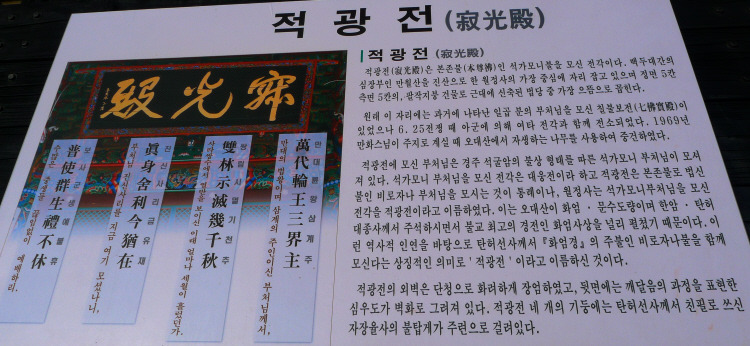 적광전(寂光殿)
적광전(寂光殿)
적광전(寂光殿)은 본존불(本尊佛)인 석가모니불을 모신 전각이다. 백두대간의
심장부인 만월산을 진산으로 한 월정사의 가장 중심에 자리 잡고 있으며 정면 5칸
측면 5칸의, 팔작지붕 건물로 근대에 신축된 법당 중 가장 으뜸으로 꼽힌다.
원래 이 자리에는 과거에 나타난 일곱 분의 부처님을 모신 칠불보전(七佛寶殿)이
있었으나 6.25전쟁 때 아군에 의해 여타 전각과 함께 전소되었다. 1969년
만화스님이 주지로 계실 때 오대산에서 자생하는 나무를 사용하여 중진하였다.
적광전에 모신 부처님은 경주 석굴암의 불상 형태를 따른 석가모니 부처님이 모셔
져 있다. 석가모니 부처님을 모신 전각은 대웅전이라 하고 적광전은 본존불로 법신
불인 비로자나 부처님을 모시는 것이 통례이나, 월정사는 석가모니부처님을 모신
전각을 적광전이라고 이름하였다. 이는 오대산이 화엄 · 문수도량이며 한암 · 탄허
대종사께서 주석하시면서 불교 최고의 경전인 화엄사상을 널리 펼쳤기 때문이다. 이
런 역사적 인연을 바탕으로 탄허선사께서 『화엄경』의 주불인 비로자나불을 함께
모신다는 상징적인 의미로 '적광전' 이라고 이름하신 것이다.
적광전의 외벽은 단청으로 화려하게 장엄하였고, 뒷면에는 깨달음의 과정을 표현한
심우도가 벽화로 그려져 있다. 적광전 네 개의 기둥에는 탄허선사께서 친필로 쓰신
자장율사의 불탑게가 주련으로 걸려있다.
殿光寂
만대윤왕삼계주
萬代輪王三界主
만대의 법왕이며 삼계의 주인이신 부처님께서,
쌍림시멸기천추
雙林示滅幾千秋
사라쌍수에서 열반을 보이신 이래 얼마나 세월이 흘렀던가.
진신사리금유재
眞身舍利今猶在
부처님 진신사리를 지금 여기 모셨나니,
보사군생예불휴
普使群生禮不休
수많은 중생들을 끊임없이 예배하리.